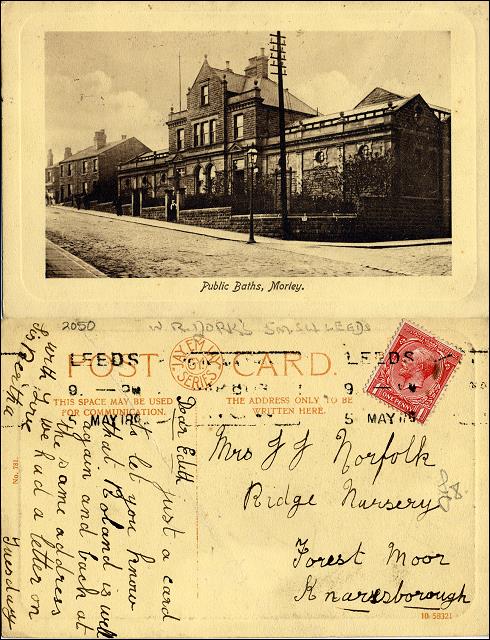 Public Baths, Morley.
2050
W R YORKS
LEEDS
LEEDS
POST CARD.
9. PM
9
5 MAY 19
5 MAY 19
THIS SPACE MAY BE USED
FOR COMMUNICATION.
THE ADDRESS ONLY TO BE
WRITTEN HERE.
Mrs J J Norfolk
Ridge Nursery
Forest Moor
Knaresborough
Dear Edith
just a card
to let you know
that Roland is well
again and back at
the same address
we had a letter on
Tuesday
with Love
Bertha
No. 781.
10 58321